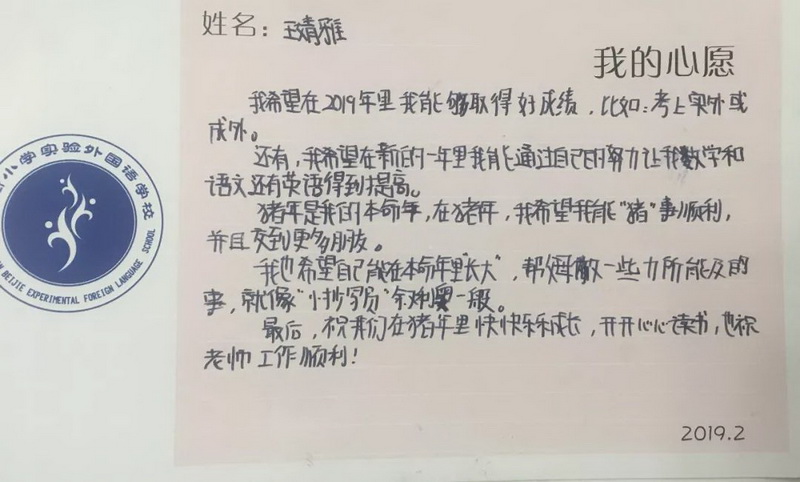 姓名：王婧雅
我的心愿
我希望在2019年里我能够取得好成绩，比如：考上实外或
成外。
还有，我希望在新的一年里我能通过自己的努力让我数学和
语文还有英语得到提高。
猪年是我的本命年，在猪年，我希望我能"猪"事顺利，
并且交到更多朋友。
我也希望自己能在本命年里"长大"，帮父母做一些力所能及的
事，就像"小抄写员"叙利奥一般。
最后，祝我们在猪年里快快乐乐成长，开开心心读书，也祝
老师工作顺利！
2019.2
小学实验外国语学校
BEIJIE EXPERIMENTAL FOREIGN LANGUAGE SCHOOL